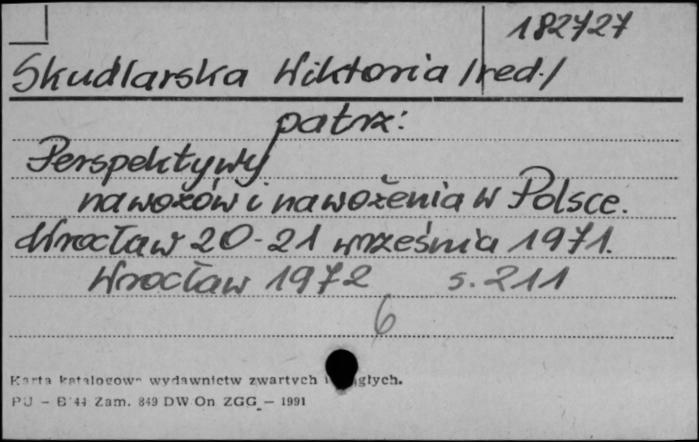 182727
Skudlarska Wiktoria /red./
patrz:
Perspektywy
nawozów i nawożenia w Polsce.
Wrocław 20-21 września 1971.
Wrocław 1972 s. 211
6
Karta katalogowa wydawnictw zwartych i ciągłych.
PU - B 44 Zam. 849 DW On ZGG - 1991